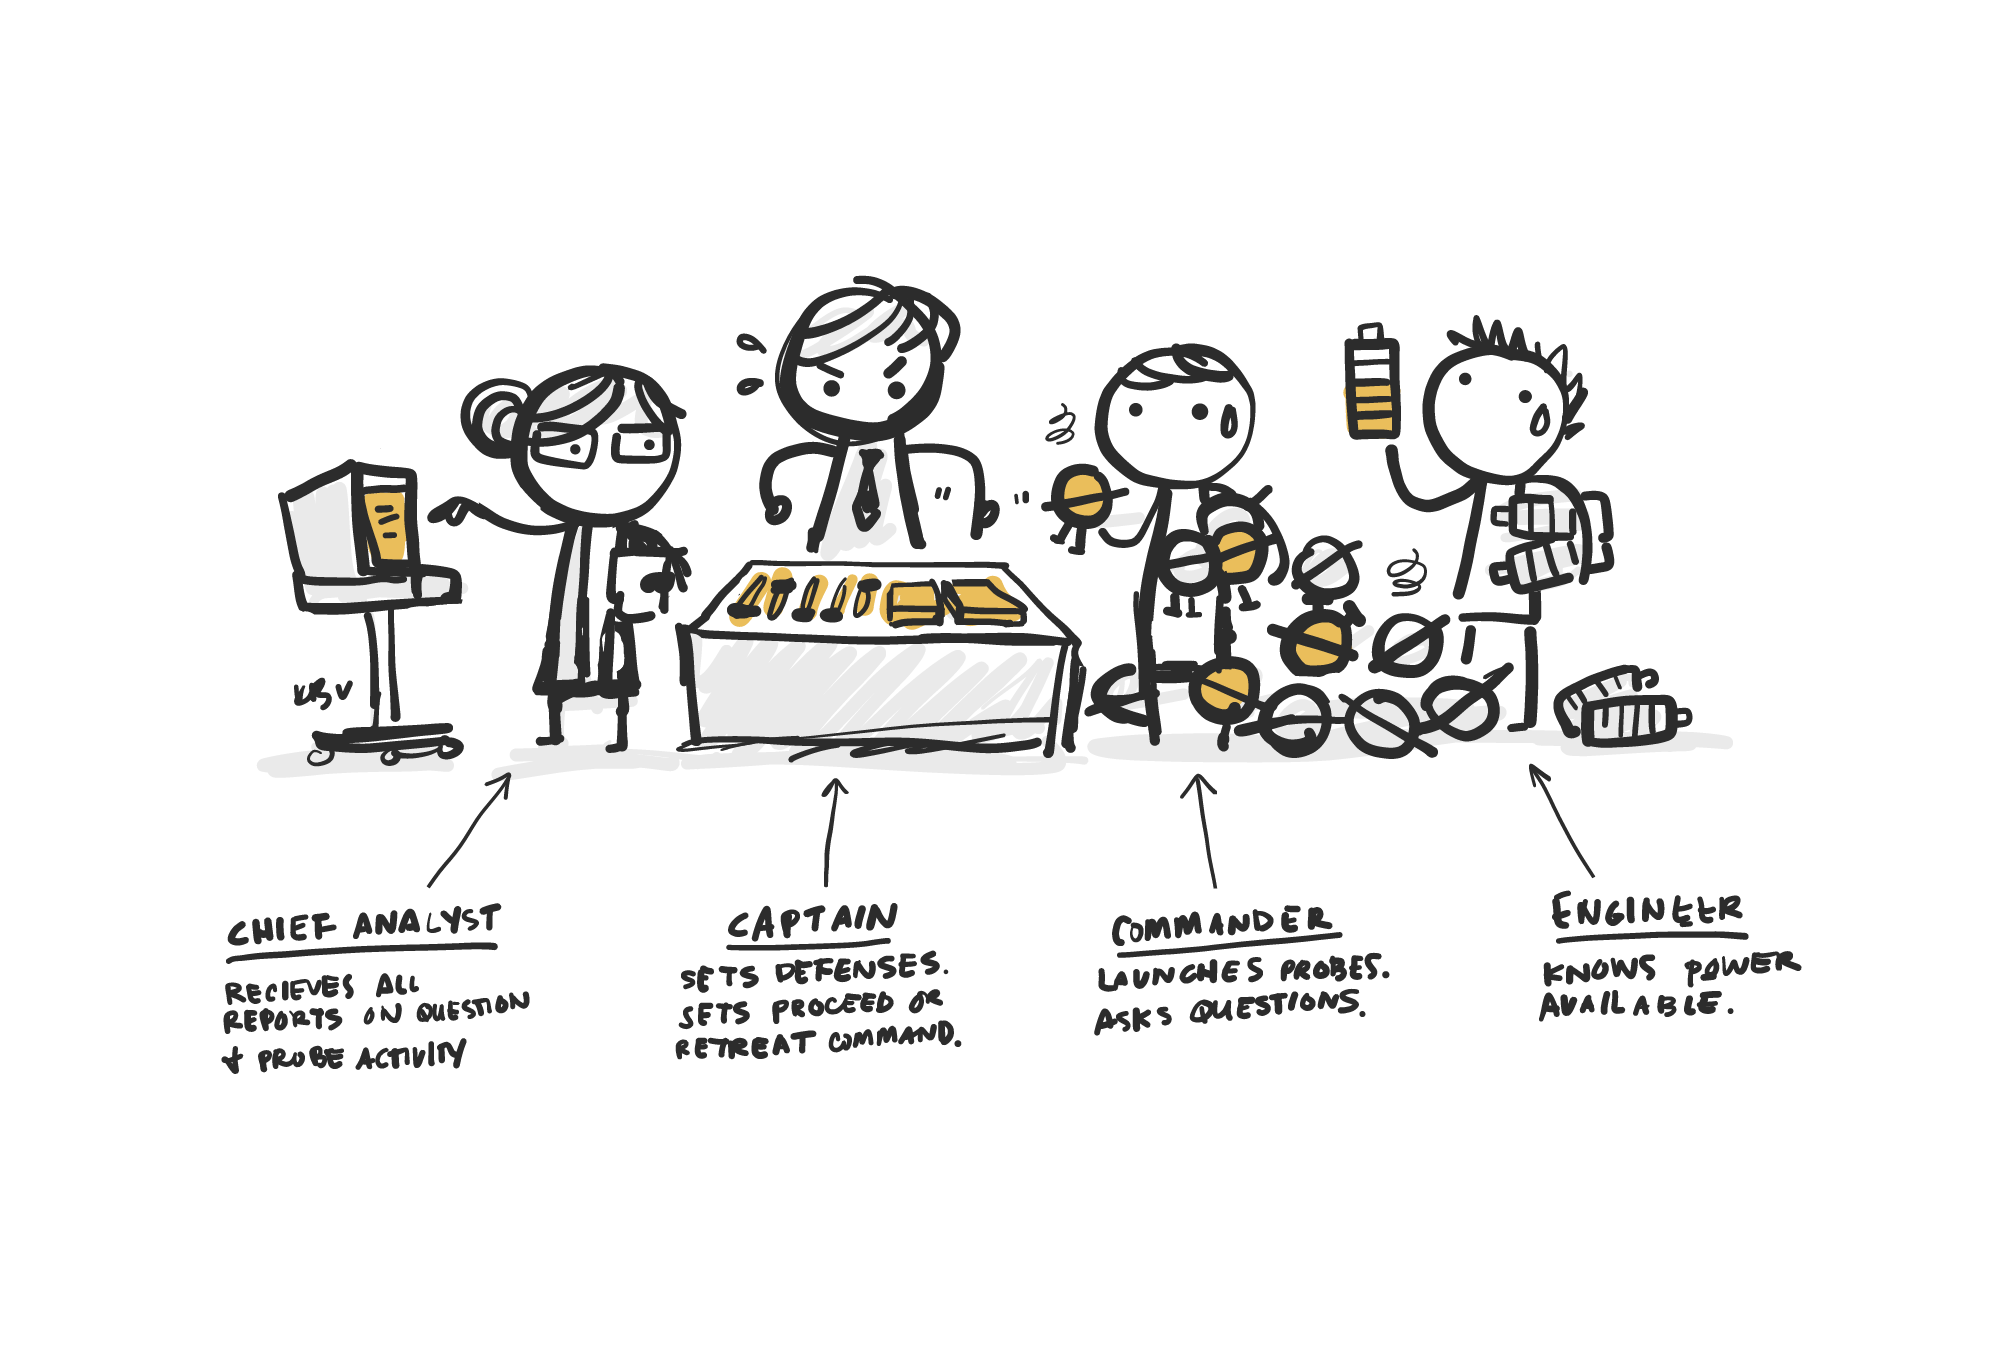 CHIEF ANALYST
RECIEVES ALL
REPORTS ON QUESTION
& PROBE ACTIVITY
CAPTAIN
SETS DEFENSES.
SETS PROCEED OR
RETREAT COMMAND.
COMMANDER
LAUNCHES PROBES.
ASKS QUESTIONS.
ENGINEER
KNOWS POWER
AVAILABLE.